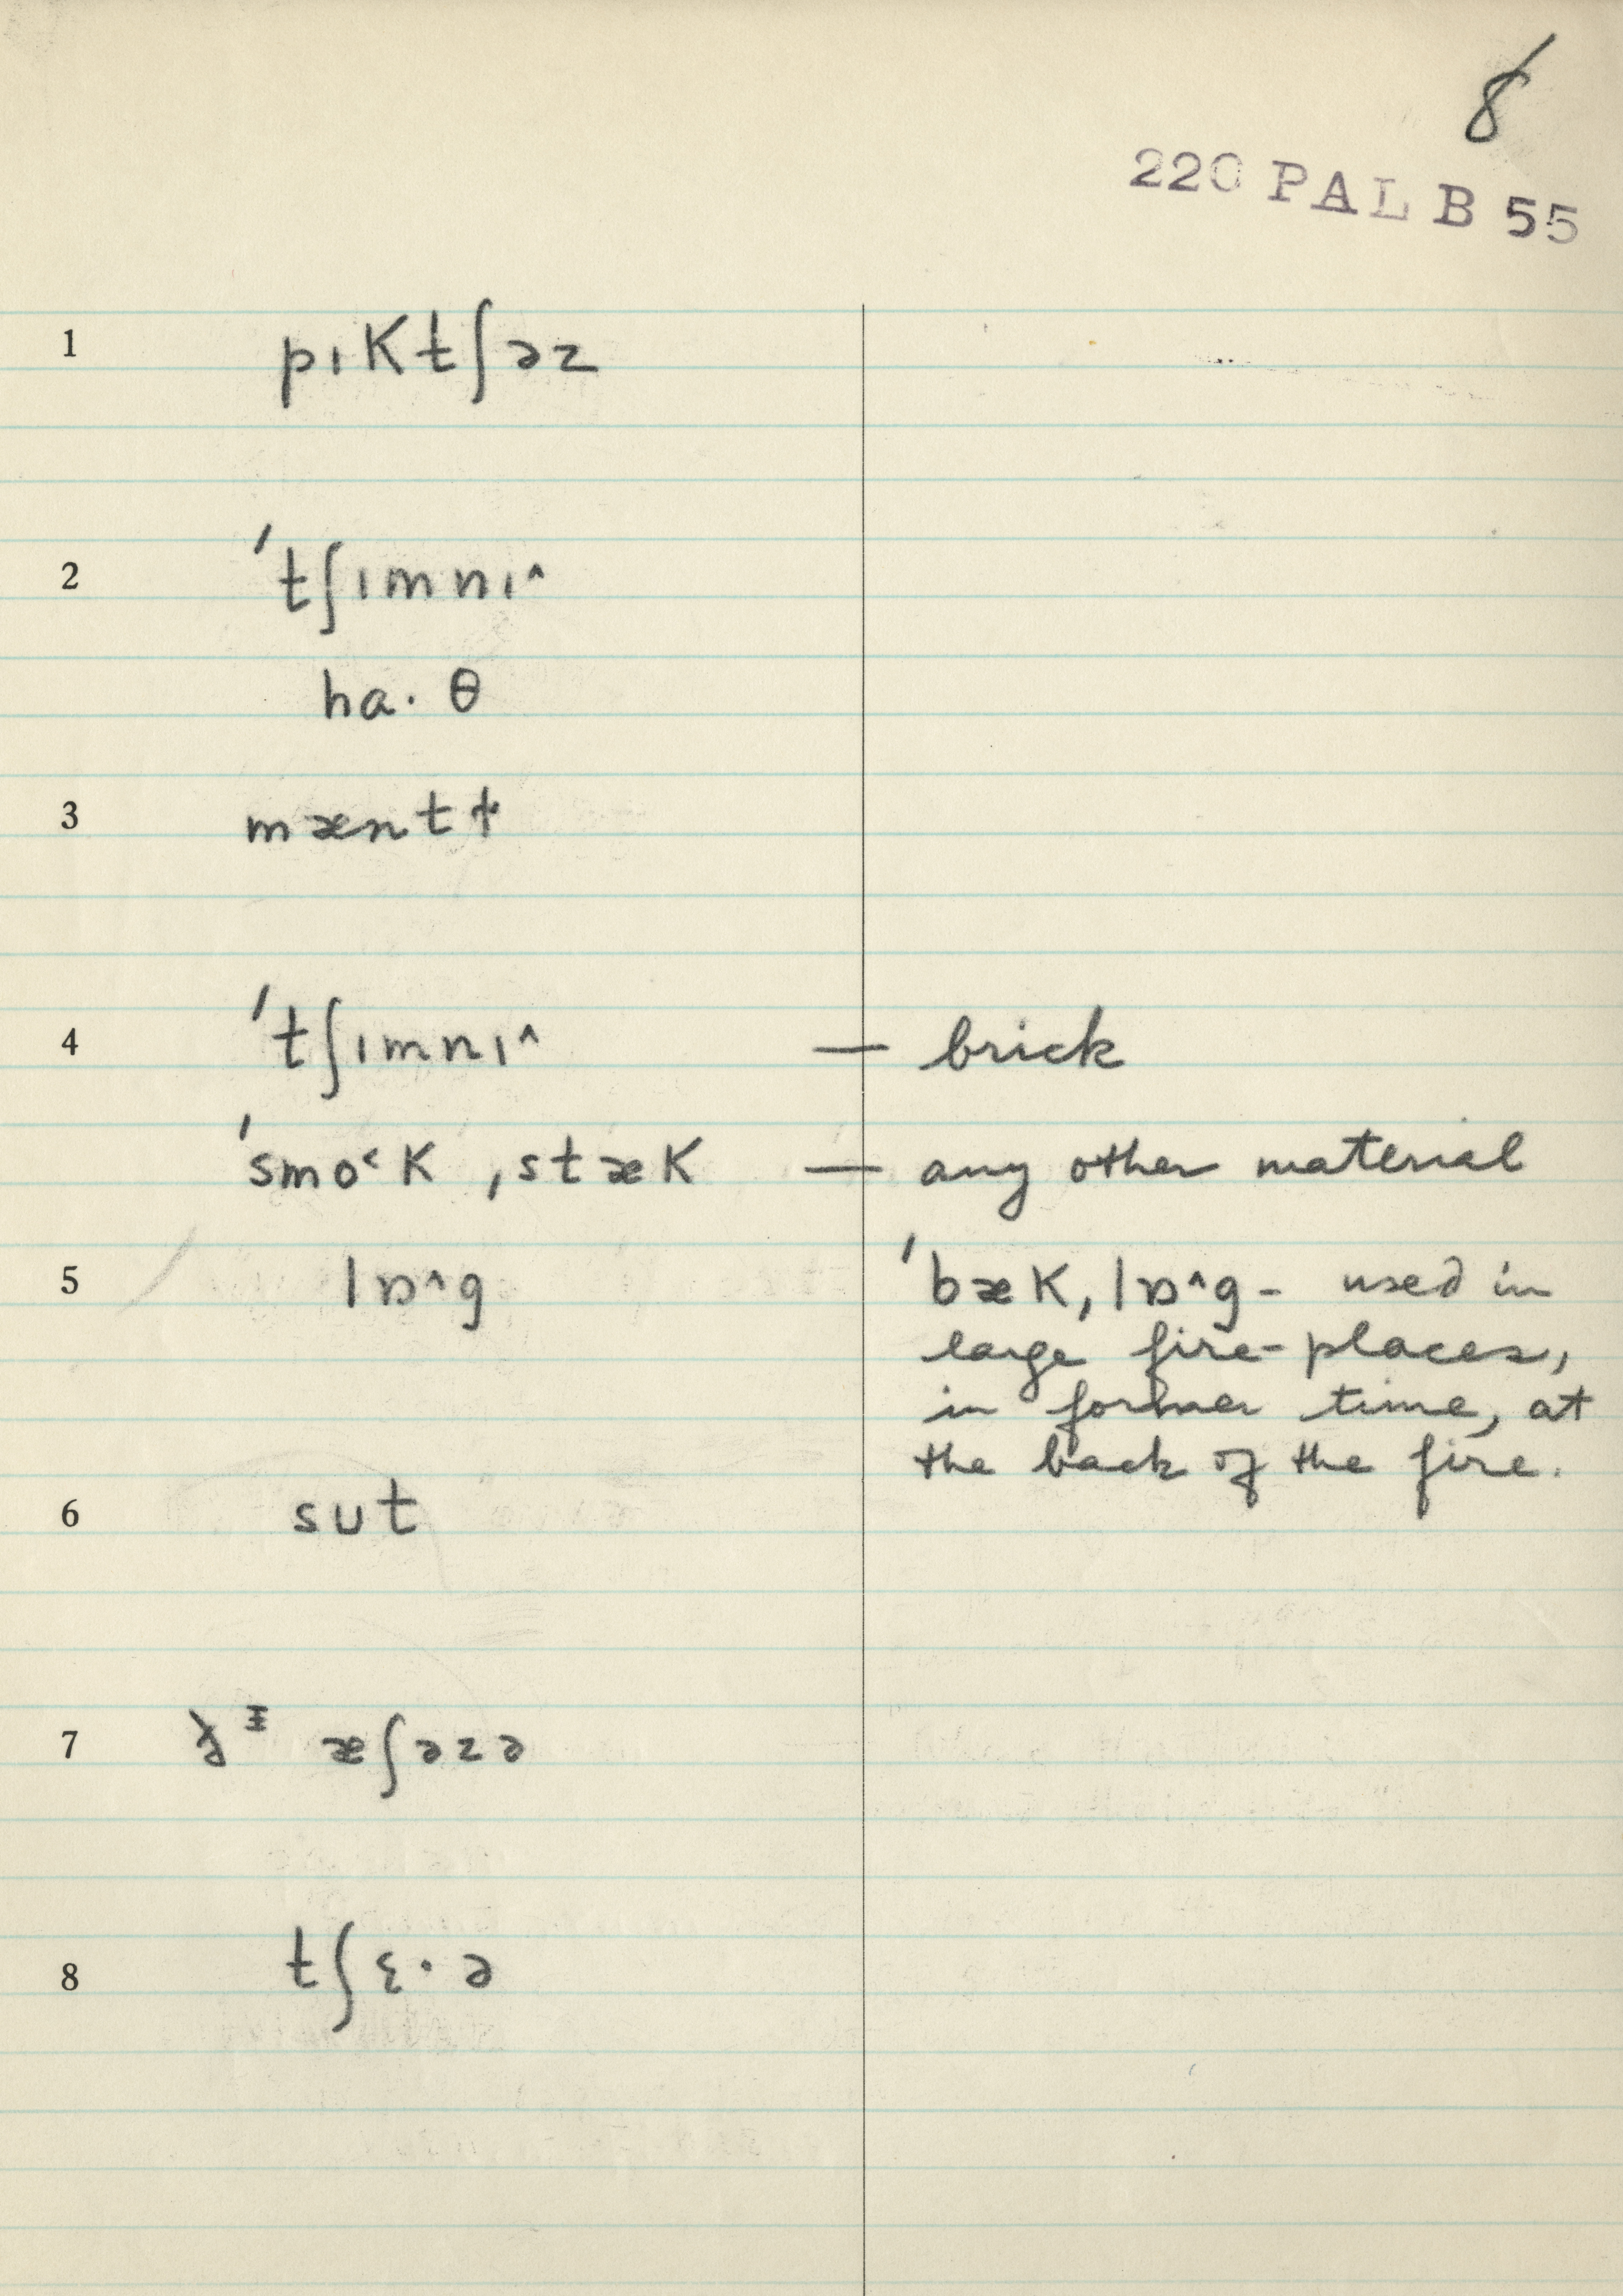 8
220 PAL B 55
1 pɪktʃəz
2 ˈtʃɪmnɪ^
ha· θ
3 mæntɫ
4 ˈtʃɪmnɪ^ — brick
ˈsmo˂k ˌstæk — any other material
5 lɒ^g ˈbæk ˌlɒ^g - used in
large fire-places,
in former time, at
the back of the fire.
6 sut
7 æʃəzə
8 tʃɛ·ə